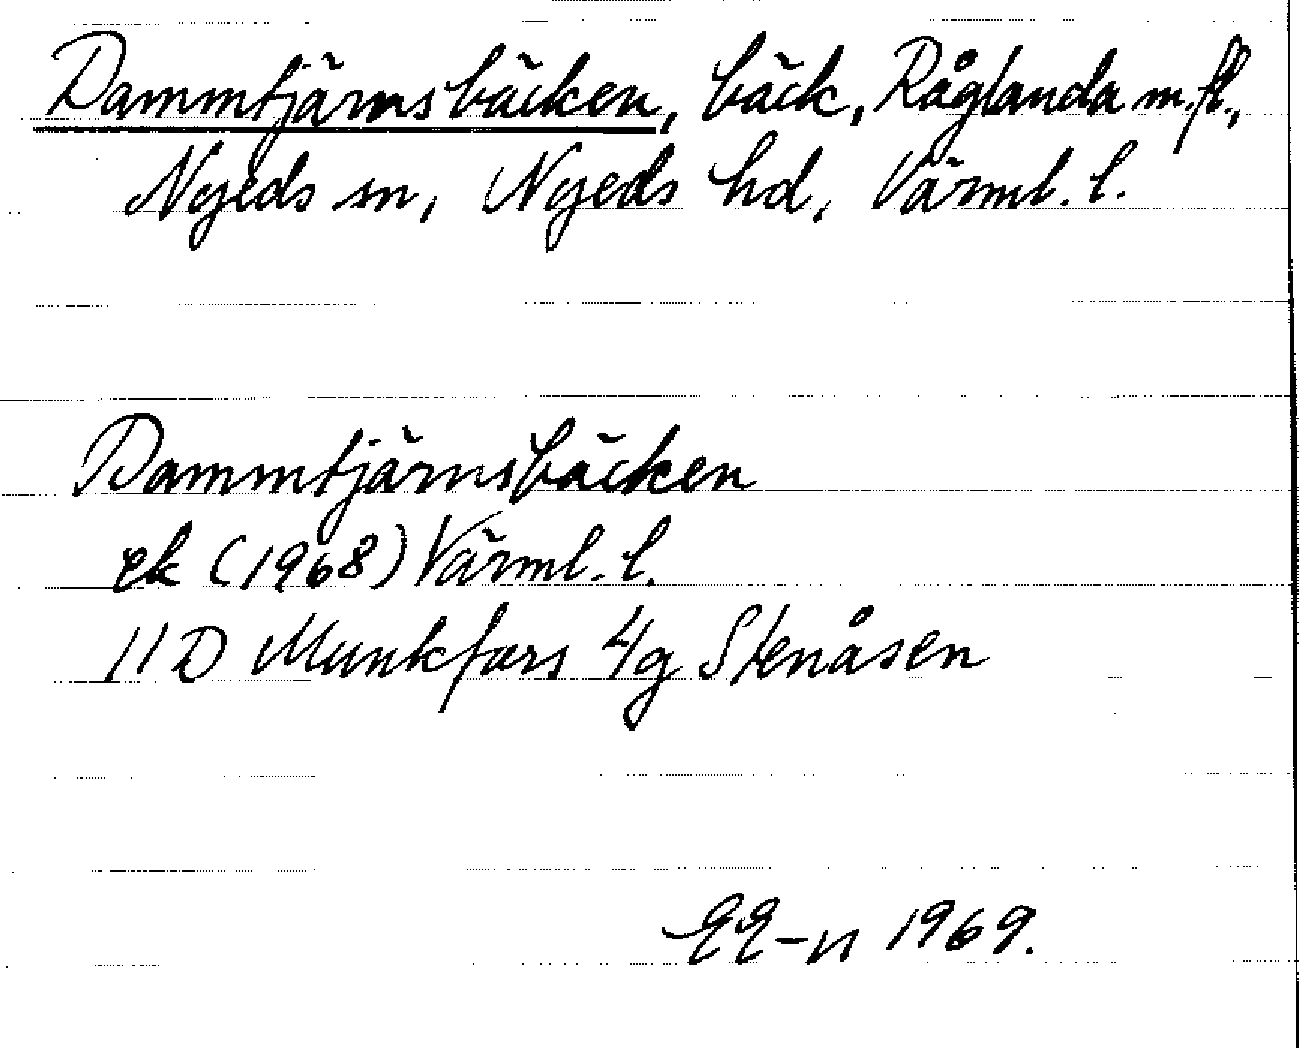 Dammtjärnsbäcken, bäck, Råglanda m.fl.,
Nyeds sn, Nyeds hd, Värml. l.
Dammtjärnsbäcken
ek (1968) Värml. l.
11D Munkfors 4g Stenåsen
1969.